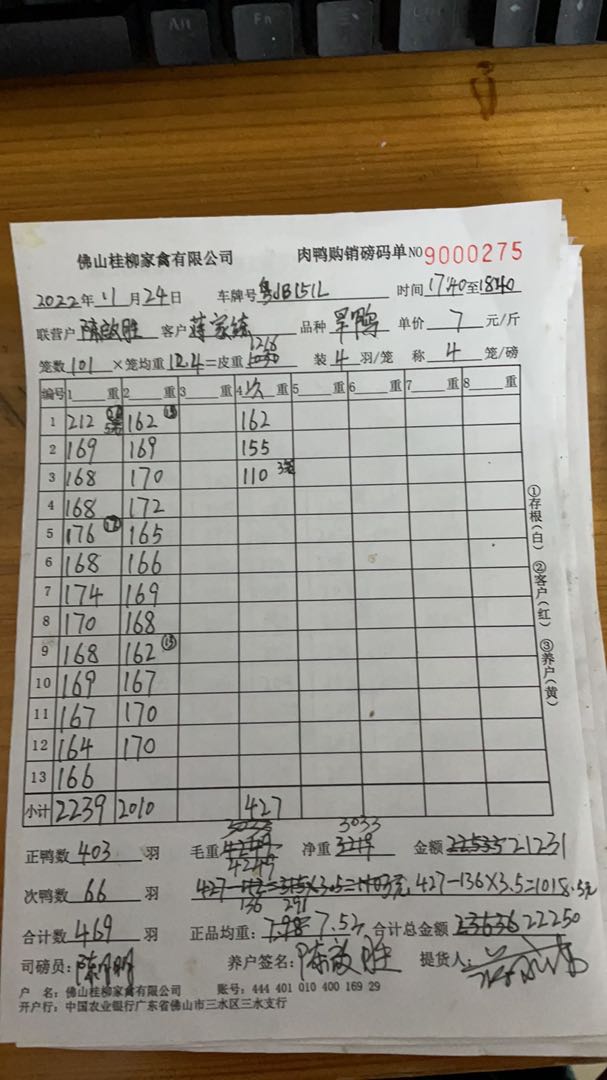 Alt
Fn
佛山桂柳家禽有限公司 肉鸭购销磅码单 NO 9000275
2022年 11月 24日 车牌号 粤JB151L 时间 17:40 至 18:40
联营户 陈啟胜 客户 品种 单价 7 元/斤
1266
笼数 101 ×笼均重 12.4 =皮重 装 4 羽/笼 称 4 笼/磅
编号 1 重 2 重 3 重 4 次 重 5 重 6 重 7 重 8 重
1 212 162 15 162
2 169 169 155
3 168 170 110 3笼
4 168 172
5 176 165
6 168 166
7 174 169
8 170 168
9 168 162 15
10 169 167
11 167 170
12 164 170
13 166
小计 2239 2010 427
3033 3033
正鸭数 403 羽 毛重 4249 净重 金额 21231
4249
次鸭数 66 羽 427-136×3.5=1018.5元
136 291
合计数 469 羽 正品均重: 7.52 合计总金额 22250
司磅员: 养户签名: 陈啟胜 提货人:
户 名: 佛山桂柳家禽有限公司 账号: 444 401 010 400 169 29
开户行: 中国农业银行广东省佛山市三水区三水支行
①存根(白) ②客户(红) ③养户(黄)